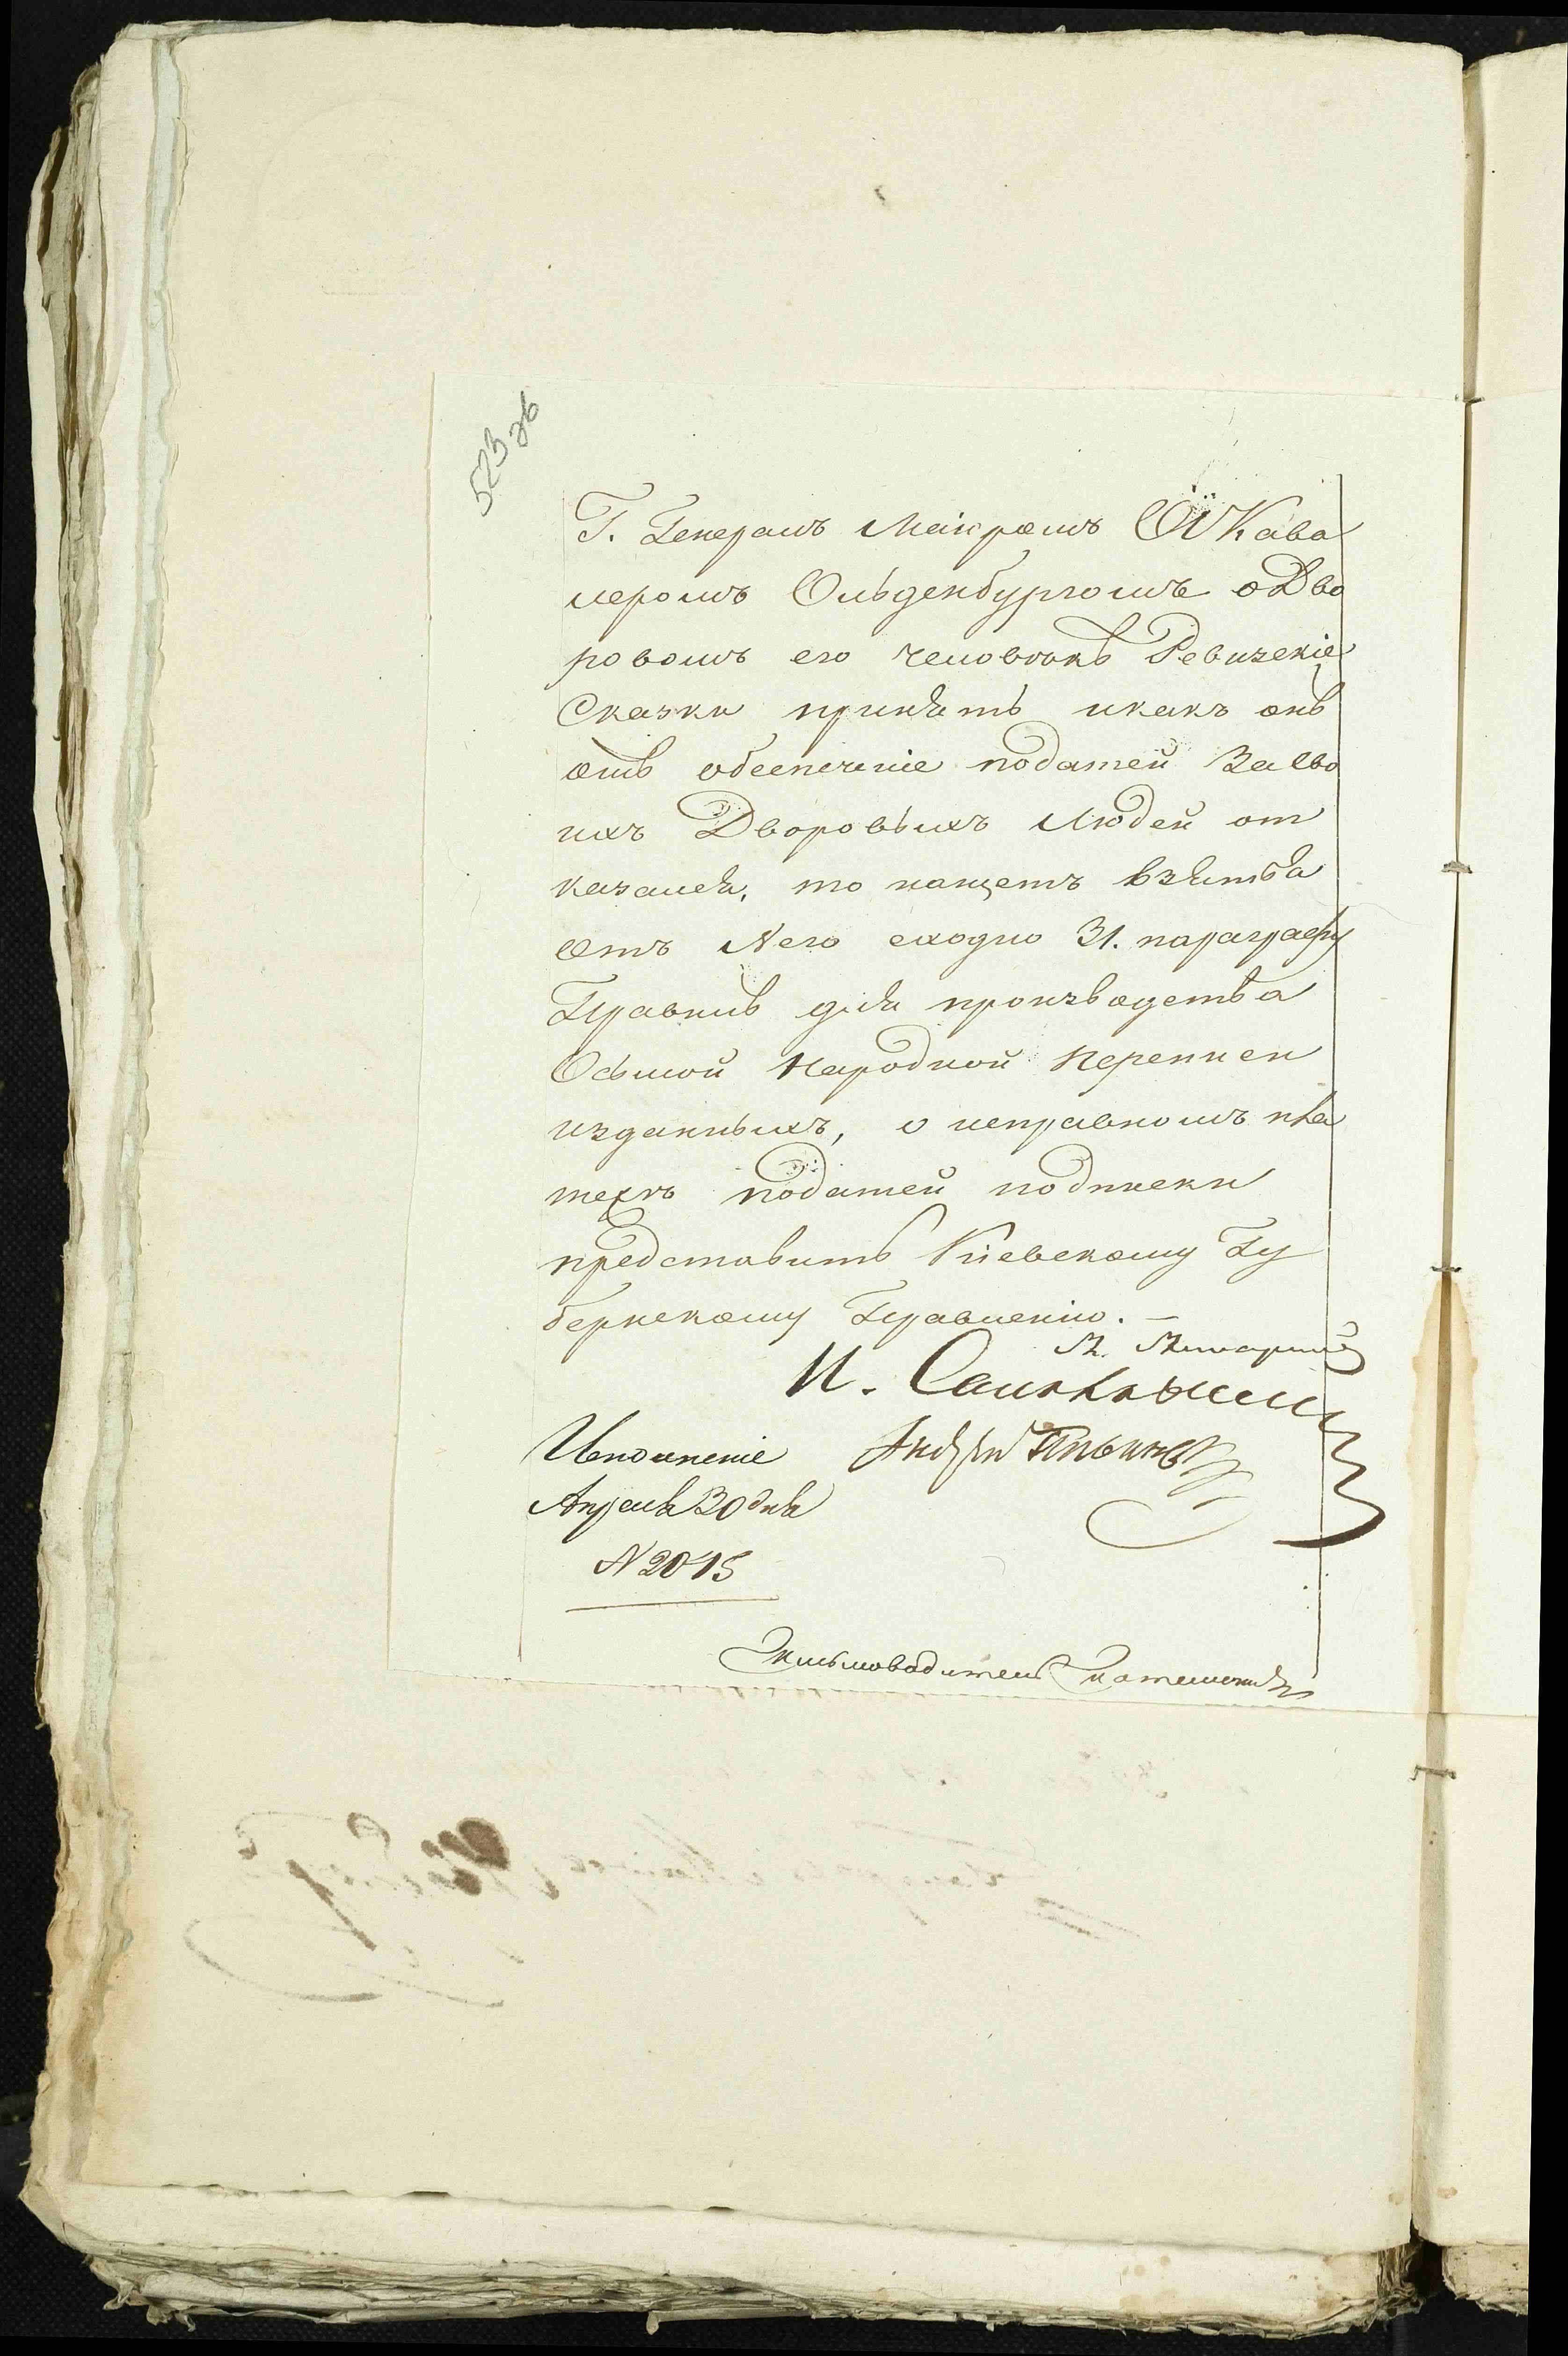 523 зв
Г. Генераломъ Маіоромъ И Кава
леромъ Ольденбургомъ о Дво
ровомъ его человѣкѣ Ревизскіе
Сказки принять и какъ онъ
отъ обеспеченіе податей За сво
ихъ Дворовыхъ Людей от
казался, то нащетъ взятья
Отъ Него сходно 31. параграфу
Правилъ для производства
Осьмой Народной Переписи
изданныхъ, о исправномъ пла
тежѣ податей подписки
представить Кіевскому Гу
бернскому Правленію. —
И.
Исполненіе
Апреля 30 дня
N 2015
Письмоводитель